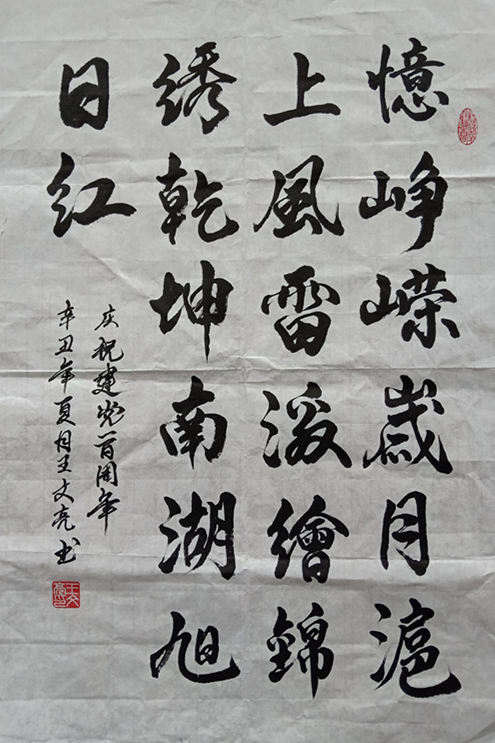 憶峥嵘歳月滬
上風雷激繪錦
绣乾坤南湖旭
日红
庆祝建党一百周年
辛丑年夏月王文亮书